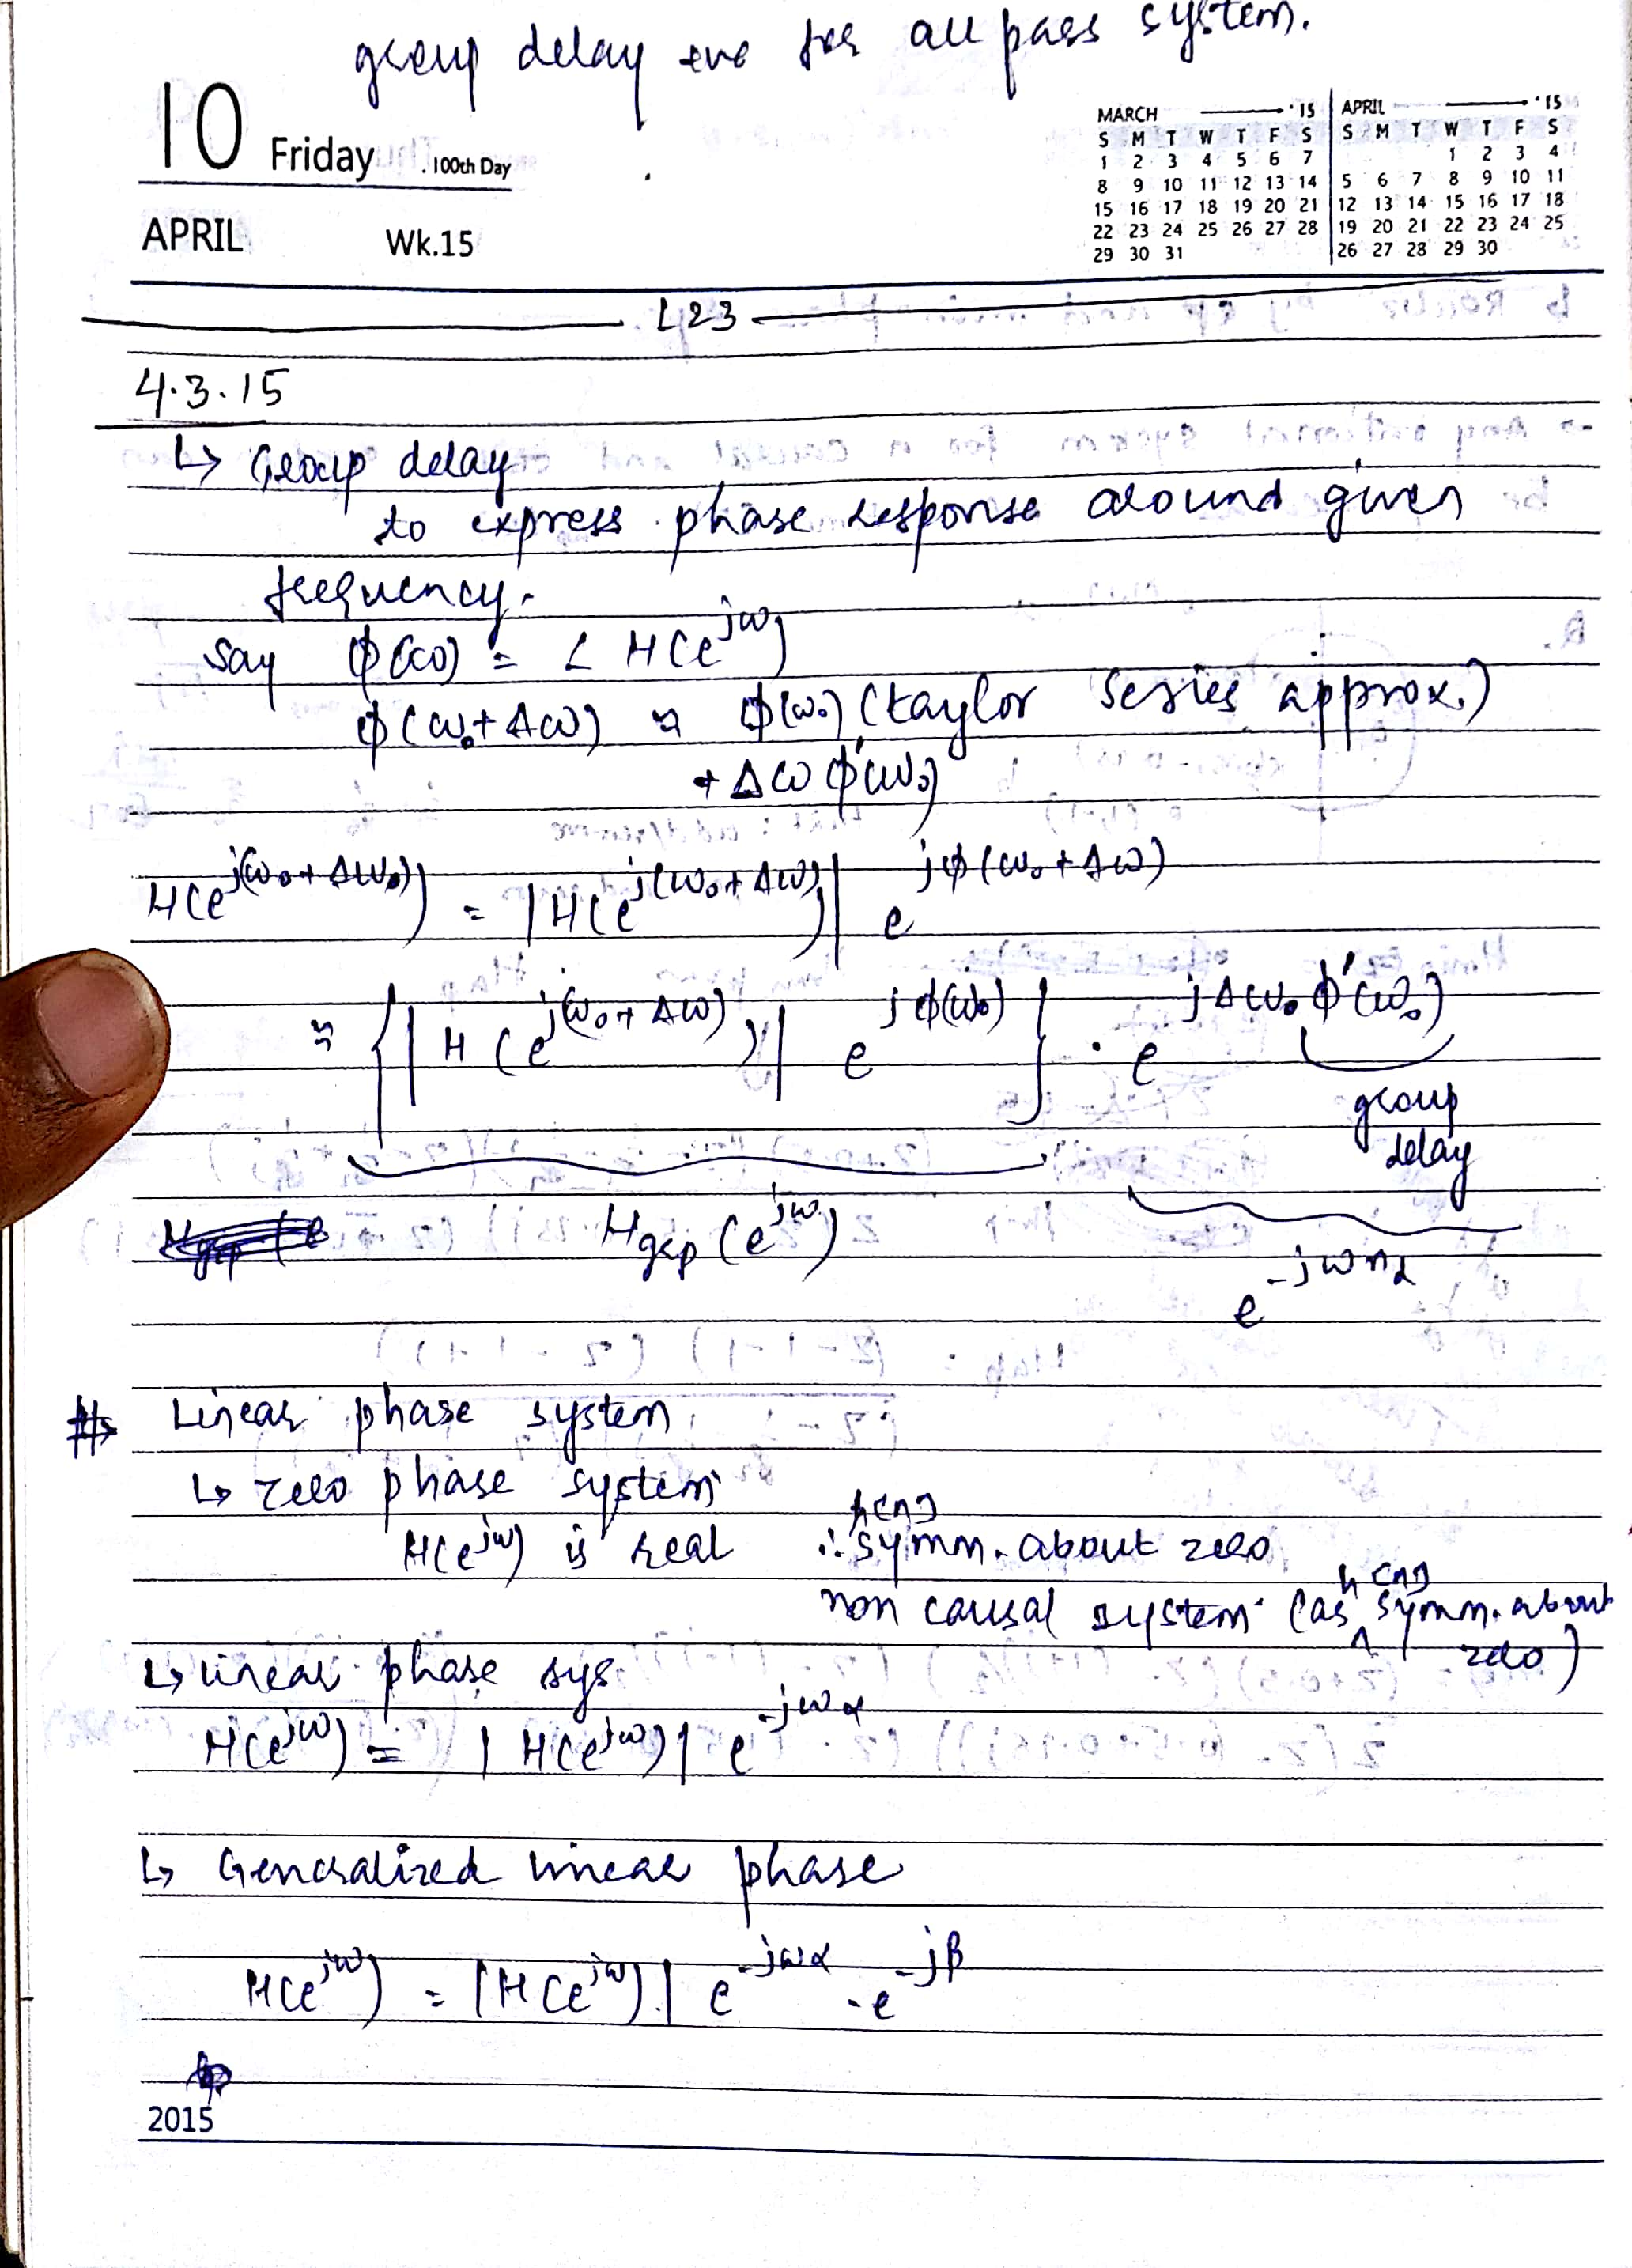 group delay +ve for all pass system.
10 Friday 100th Day
APRIL Wk.15
MARCH '15
S M T W T F S
1 2 3 4 5 6 7
8 9 10 11 12 13 14
15 16 17 18 19 20 21
22 23 24 25 26 27 28
29 30 31
APRIL '15
S M T W T F S
1 2 3 4
5 6 7 8 9 10 11
12 13 14 15 16 17 18
19 20 21 22 23 24 25
26 27 28 29 30
L23
4.3.15
↳ Group delay
to express phase response around given
frequency.
Say ϕ(ω) = ∠ H(e^{jω})
ϕ(ω₀+Δω) ≈ ϕ(ω₀) (taylor series approx.)
+ Δω ϕ'(ω₀)
H(e^{j(ω₀+Δω₀)}) = |H(e^{j(ω₀+Δω)})| e^{jϕ(ω₀+Δω)}
≈ {|H(e^{j(ω₀+Δω)})| e^{jϕ(ω₀)}} · e^{jΔω₀ϕ'(ω₀)}
group
delay
H_{grp}(e^{jω}) e^{-jωn_d}
# Linear phase system
↳ zero phase system
H(e^{jω}) is real ∴ h[n] symm. about zero
non causal system (as h[n] symm. about zero)
↳ linear phase sys
H(e^{jω}) = |H(e^{jω})| e^{-jωα}
↳ Generalized linear phase
H(e^{jω}) = |H(e^{jω})| e^{-jωα} · e^{-jβ}
2015